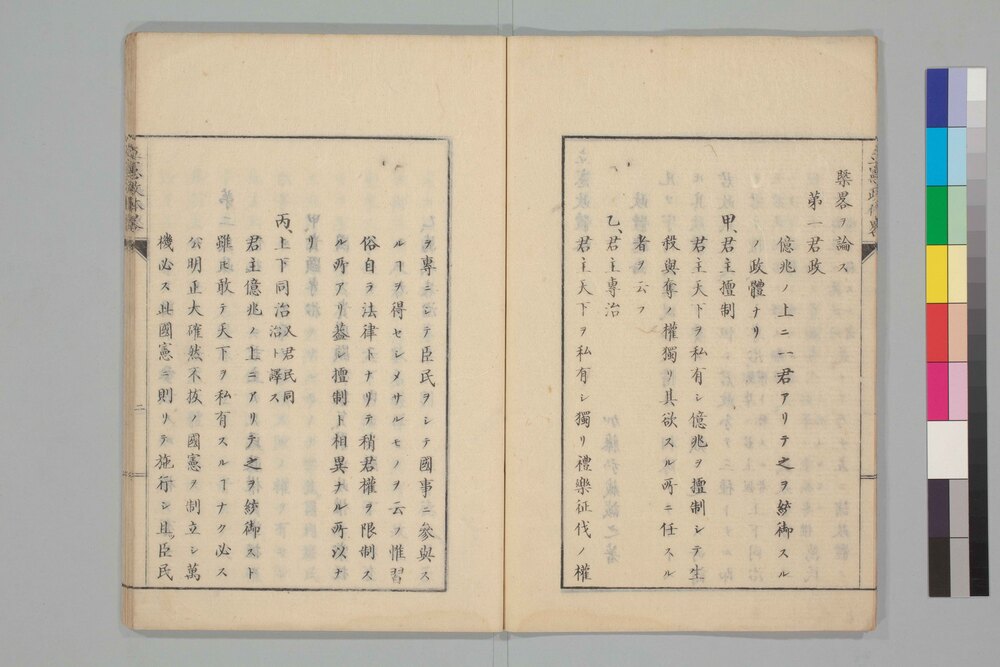 槩畧ヲ論ス
第一君政
億兆ノ上ニ一君アリテ之ヲ統御スル
ノ政體ナリ
甲、君主擅制
君主天下ヲ私有シ億兆ヲ擅制シテ生
殺與奪ノ權獨リ其欲スル所ニ任スル
者ヲ云フ
乙、君主專治
君主天下ヲ私有シ獨リ禮樂征伐ノ權
ヲ專ニシテ臣民ヲシテ國事ニ參與ス
ルヿヲ得セシメサルモノヲ云フ惟習
俗自ラ法律トナリテ稍君權ヲ限制ス
ル所アリ葢シ擅制ト相異ナル所以ナ
リ
丙、上下同治又君民同治ト譯ス
君主億兆ノ上ニアリテ之ヲ統御スト
雖𪜈敢テ天下ヲ私有スルヿナク必ス
公明正大確然不拔ノ國憲ヲ制立シ萬
機必ス此國憲ニ則リテ施行シ且臣民
立憲政體畧
二